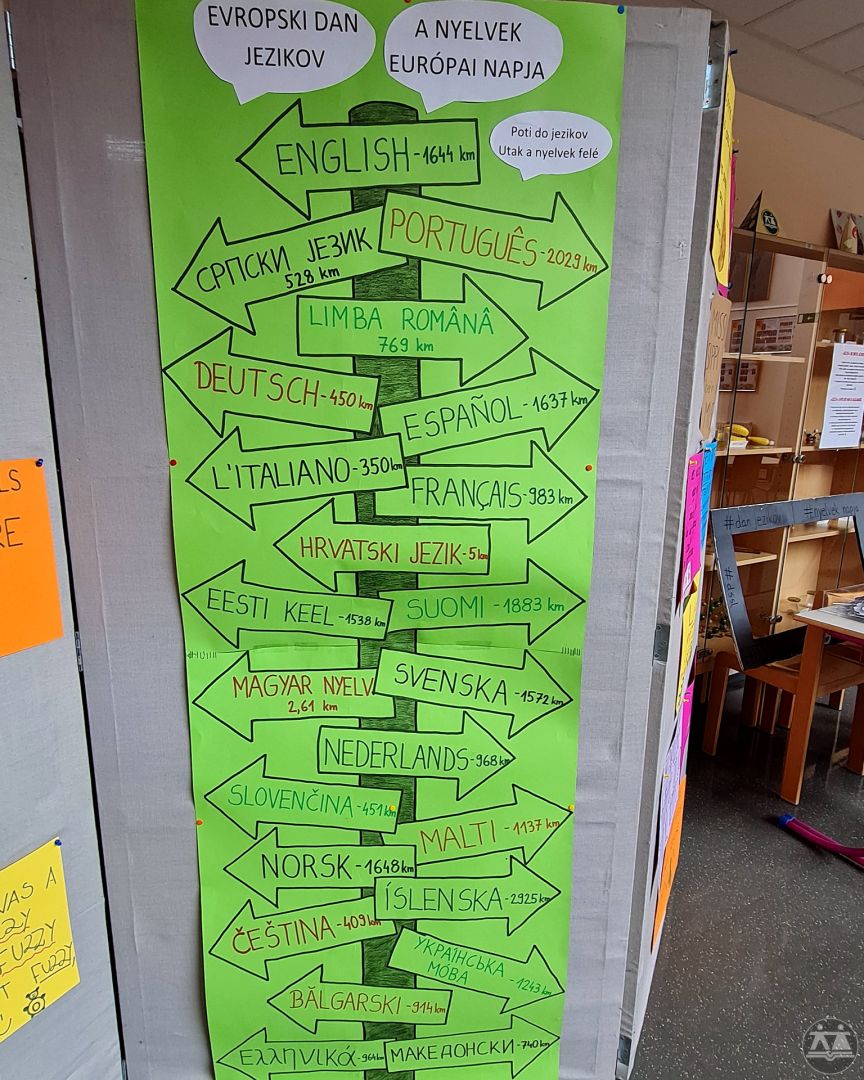 EVROPSKI DAN
JEZIKOV
A NYELVEK
EURÓPAI NAPJA
Poti do jezikov
Utak a nyelvek felé
ENGLISH-1644 km
СРПСКИ ЈЕЗИК
528 km
PORTUGUÊS-2029 km
LIMBA ROMÂNĂ
769 km
DEUTSCH-450 km
ESPAÑOL-1637 km
L'ITALIANO-350 km
FRANÇAIS-983 km
HRVATSKI JEZIK-5 km
EESTI KEEL-1538 km
SUOMI-1883 km
MAGYAR NYELV
2,61 km
SVENSKA-1572 km
NEDERLANDS-968 km
SLOVENČINA-451 km
MALTI-1137 km
NORSK-1648 km
ÍSLENSKA-2925 km
ČEŠTINA-409 km
УКРАЇНСЬКА
МОВА -1243 km
BĂLGARSKI-914 km
Ελληνικά-964 km
МАКЕДОНСКИ-740 km
LS
RE
WAS A
FUZZY
FUZZY,
#dan jezikov #nyelvek napja
#dsš1
MISS